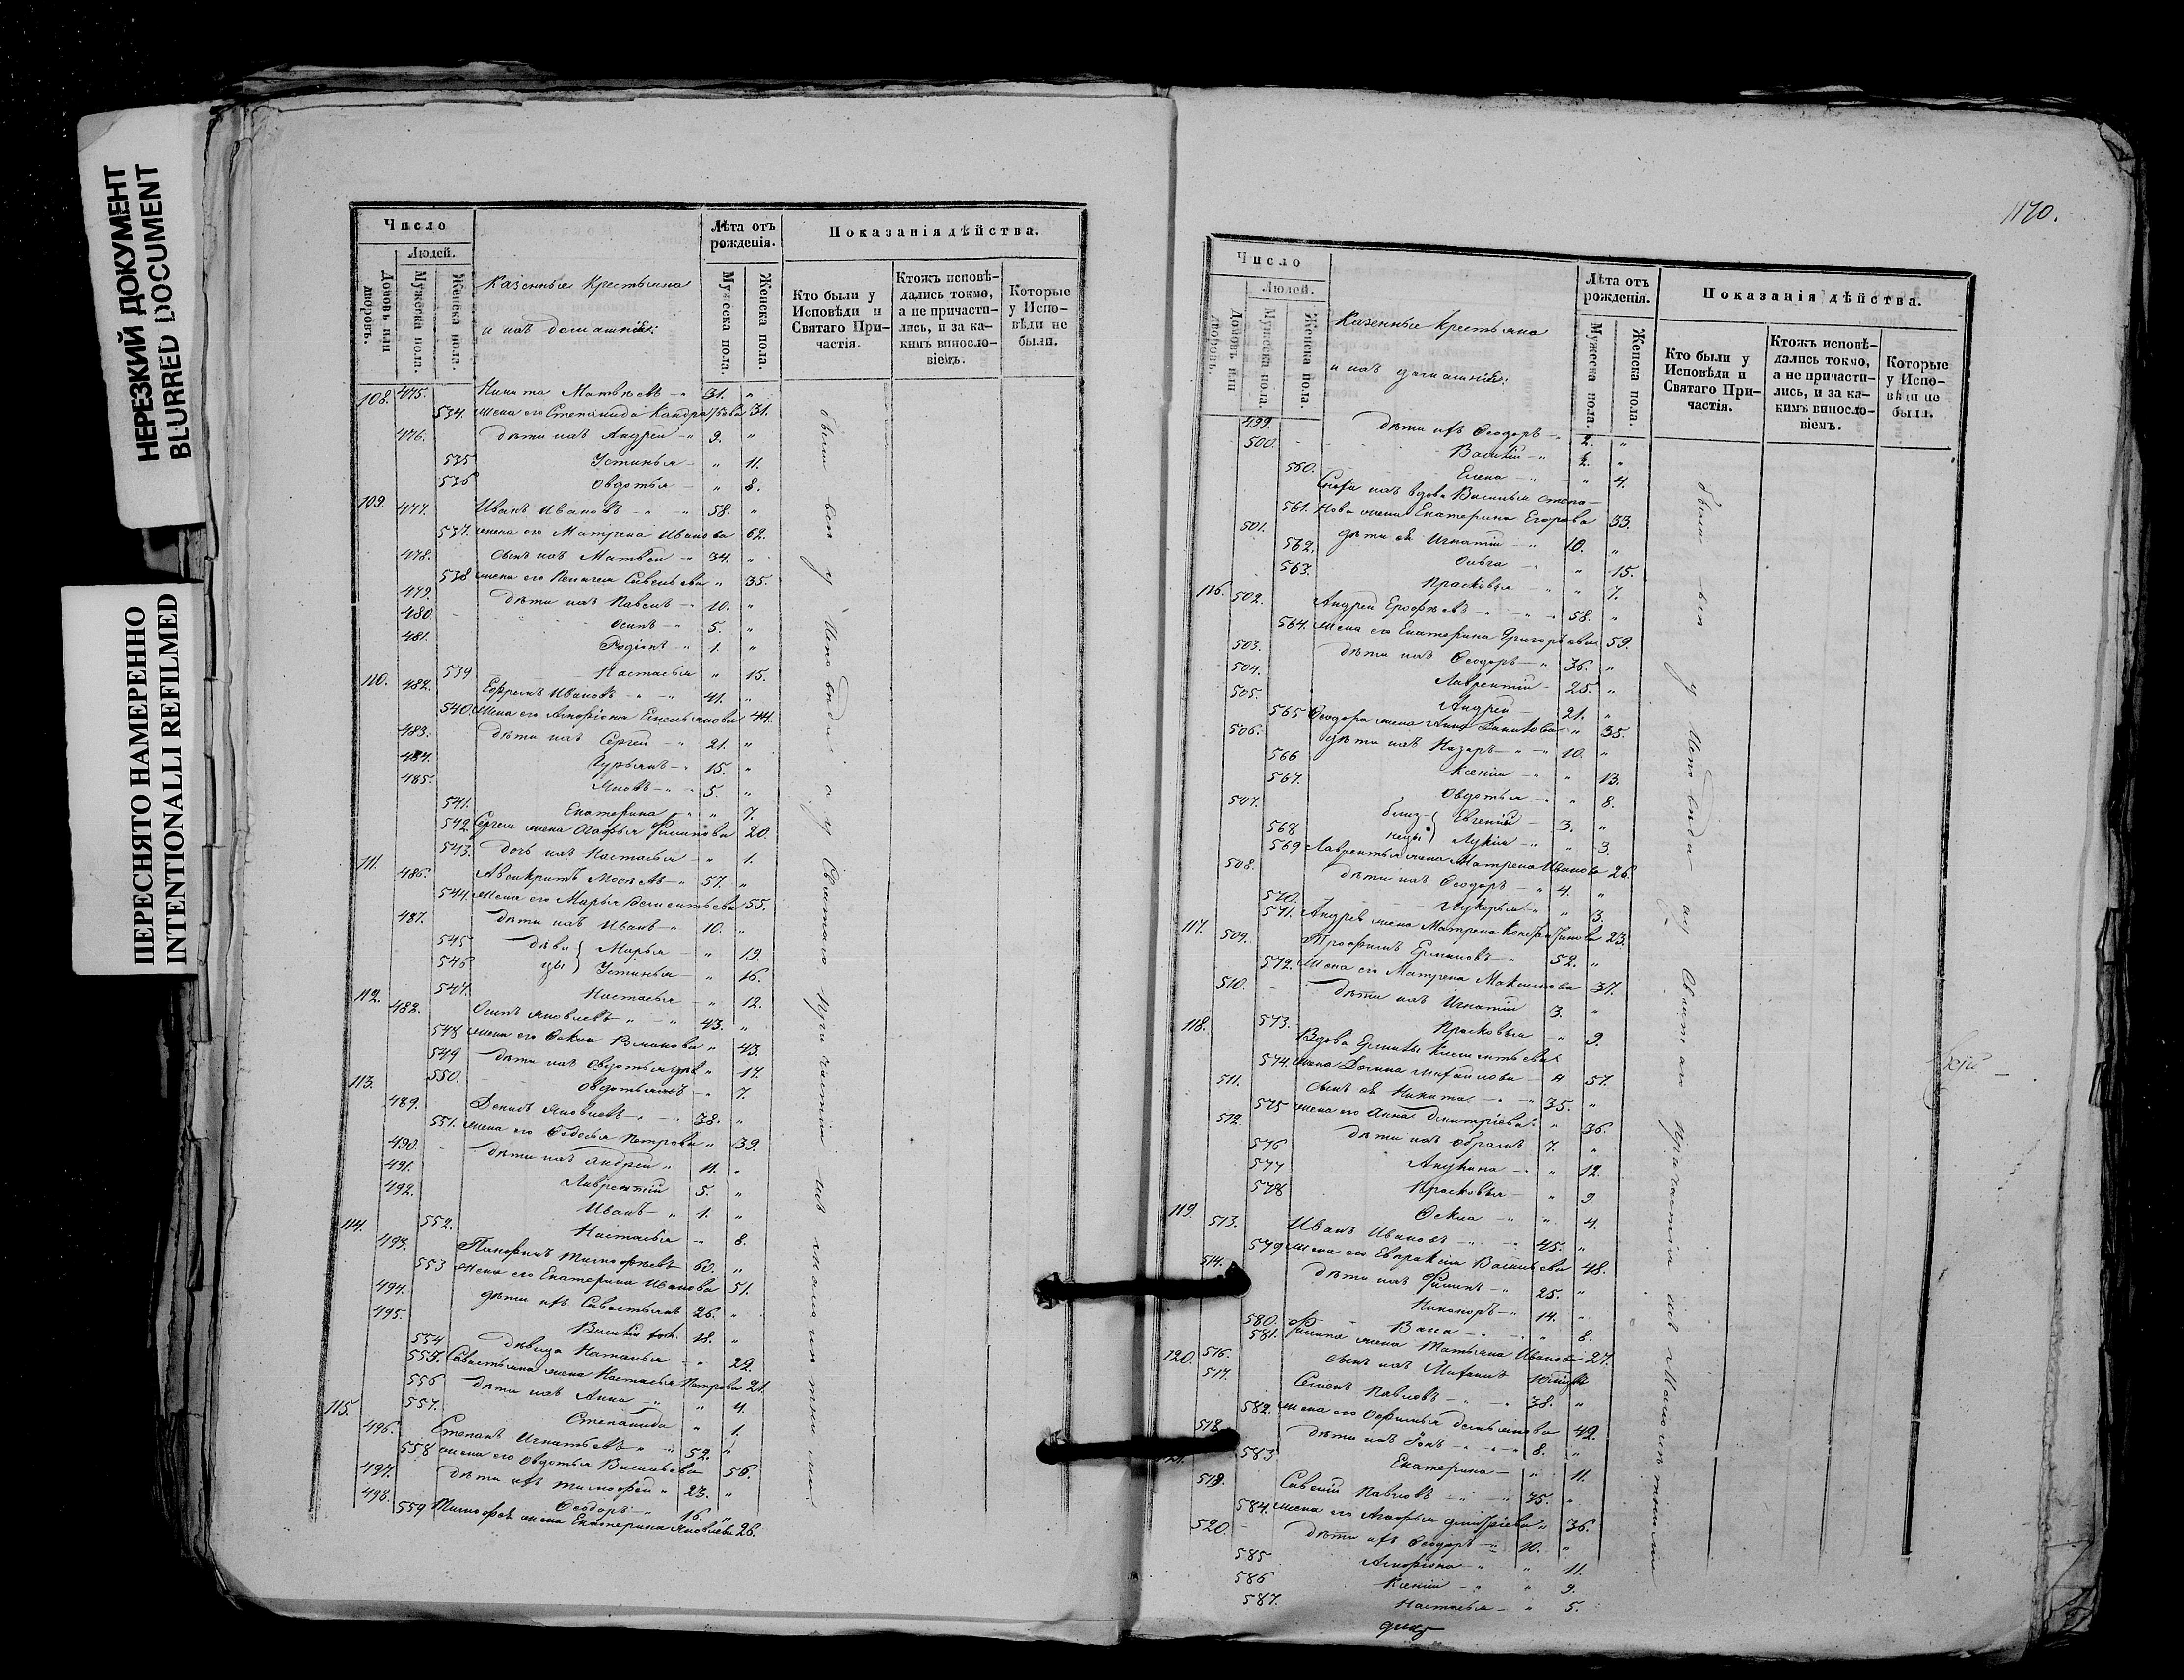 НЕРЕЗКИЙ ДОКУМЕНТ
BLURRED DOCUMENT
ПЕРЕСНЯТО НАМЕРЕННО
INTENTIONALLI REFILMED
Число
Людей.
Домовъ или дворовъ.
Мужеска пола.
Женска пола.
Казенные крестьяне
и ихъ домашніе:
Лѣта отъ рожденія.
Мужеска пола.
Женска пола.
Показанія дѣйства.
Кто были у Исповѣди и Святаго Причастія.
Ктожъ исповѣдались токмо, а не причастились, и за какимъ винословіемъ.
Которые у Исповѣди не были.
108. 475. Никита Матвѣевъ 31. "
534. жена его Степанида Кондратьева 31.
476. дѣти ихъ Андрей 9. "
535 Устинья " 11.
536 Овдотья " 8.
109. 477. Иванъ Ивановъ 58. "
537. жена его Матрена Иванова 62.
478. сынъ ихъ Матвей 34. "
538 жена его Пелагея Савельева " 35.
479. дѣти ихъ Павелъ 10. "
480. Осипъ 5. "
481. Родіонъ 1. "
539 Настасья " 15.
110. 482. Ефремъ Ивановъ 41. "
540. жена его Агафiя Емельянова 44.
483. дѣти ихъ Сергей 21. "
484. Гурьянъ 15. "
485. Яковъ 5. "
541. Екатерина " 7.
542. Сергея жена Агафья Филипова 20.
543. дочь ихъ Настасья " 1.
111. 486. Авенкритъ Мосѣевъ 57. "
544. жена его Марья 55.
487. дѣти ихъ Иванъ 10. "
545 дѣви- Марья " 19.
546 цы Устинья " 16.
547. Настасья " 12.
112. 488. Осипъ Яковлевъ 43. "
548 жена его Оекла Романова " 43.
549 дѣти ихъ Овдотья " 17.
550. Овдотья " 7.
113. 489. Денисъ Яковлевъ 38. "
551. жена его Ѳедосья Петрова " 39.
490. дѣти ихъ Андрей 11. "
491. Лаврентій 5. "
492. Иванъ 1. "
552. Настасья " 8.
114. 493. Тимофѣевъ 60. "
553 жена его Екатерина Иванова 51.
494. дѣти ихъ Савастьянъ 26. "
495. Василій 18. "
554 дѣвица Наталья " 22.
555. Савастьяна жена Настасья Петрова 21.
556 дѣти ихъ Анна " 4.
557. Степанида " 1.
115. 496. Степанъ Игнатьевъ 52. "
558 жена его Овдотья Васильева 56.
497. дѣти ихъ Тимофей 23. "
498. Ѳеодоръ 16. "
559 Тимофея жена Екатерина Яковлева 26.
были вси у Исповѣди а у Святаго причастія съ малолѣтними
1170.
Число
Людей.
Домовъ или дворовъ.
Мужеска пола.
Женска пола.
Казенные крестьяне
и ихъ домашніе:
Лѣта отъ рожденія.
Мужеска пола.
Женска пола.
Показанія дѣйства.
Кто были у Исповѣди и Святаго Причастія.
Ктожъ исповѣдались токмо, а не причастились, и за какимъ винословіемъ.
Которые у Исповѣди не были.
499. дѣти ихъ Ѳеодоръ 2. "
500. Василій "
560. Елена " 4.
Сноха ихъ вдова Василья Степа-
561. нова жена Екатерина Егорова 33.
501. дѣти ея Игнатій 10. "
562. Ольга " 15.
563. Прасковья " 7.
116. 502. Андрей Ерофѣевъ 58. "
564. жена его Екатерина Григорьева 59.
503. дѣти ихъ Ѳеодоръ 36. "
504. Лаврентій 25. "
505. Андрей 21. "
565 Ѳеодора жена Анна Данилова " 35.
506. дѣти ихъ Назаръ 10. "
566 Ксенія " 13.
567. Овдотья " 8.
507. близ- Евгеній 3. "
568 нецы Лукія " 3.
569 Лаврентья жена Матрена Иванова 26.
508. дѣти ихъ Ѳеодоръ 4. "
570. Лукерья " 3.
571. Андрея жена Матрена Константинова 23.
117. 509. Трофимъ Ермиловъ 52. "
572. жена его Матрена Максимова 37.
510. дѣти ихъ Игнатій 3. "
573. Прасковья " 9.
118. Вдова Ермилы Климентьева
574. жена Домна Михайлова 57.
511. сынъ ея Никита 35. "
575 жена его Анна Дмитріева " 36.
512. дѣти ихъ Обрамъ 7. "
576 Акулина " 12.
577 Прасковья " 9.
578 Оекла " 4.
119. 513. Иванъ Ивановъ 45. "
579 жена его Евпраксія Васильева 48.
514. дѣти ихъ Филипъ 25. "
Никаноръ 14. "
580. Васса " 8.
581. Филипа жена Татьяна Иванова 27.
516. сынъ ихъ Михаилъ
120. 517. Семенъ Павловъ 38. "
582. жена его Ѳефимья Демьянова 42.
518. дѣти ихъ 8. "
583 Екатерина " 11.
519. Савелій Павловъ 35. "
584. жена его Агафья Дмитріева " 36.
520. дѣти ихъ Ѳеодоръ 10. "
585 " 11.
586 Ксенія " 9.
587. Настасья " 5.
были вси у Исповѣди а у Святаго причастія съ малолѣтними